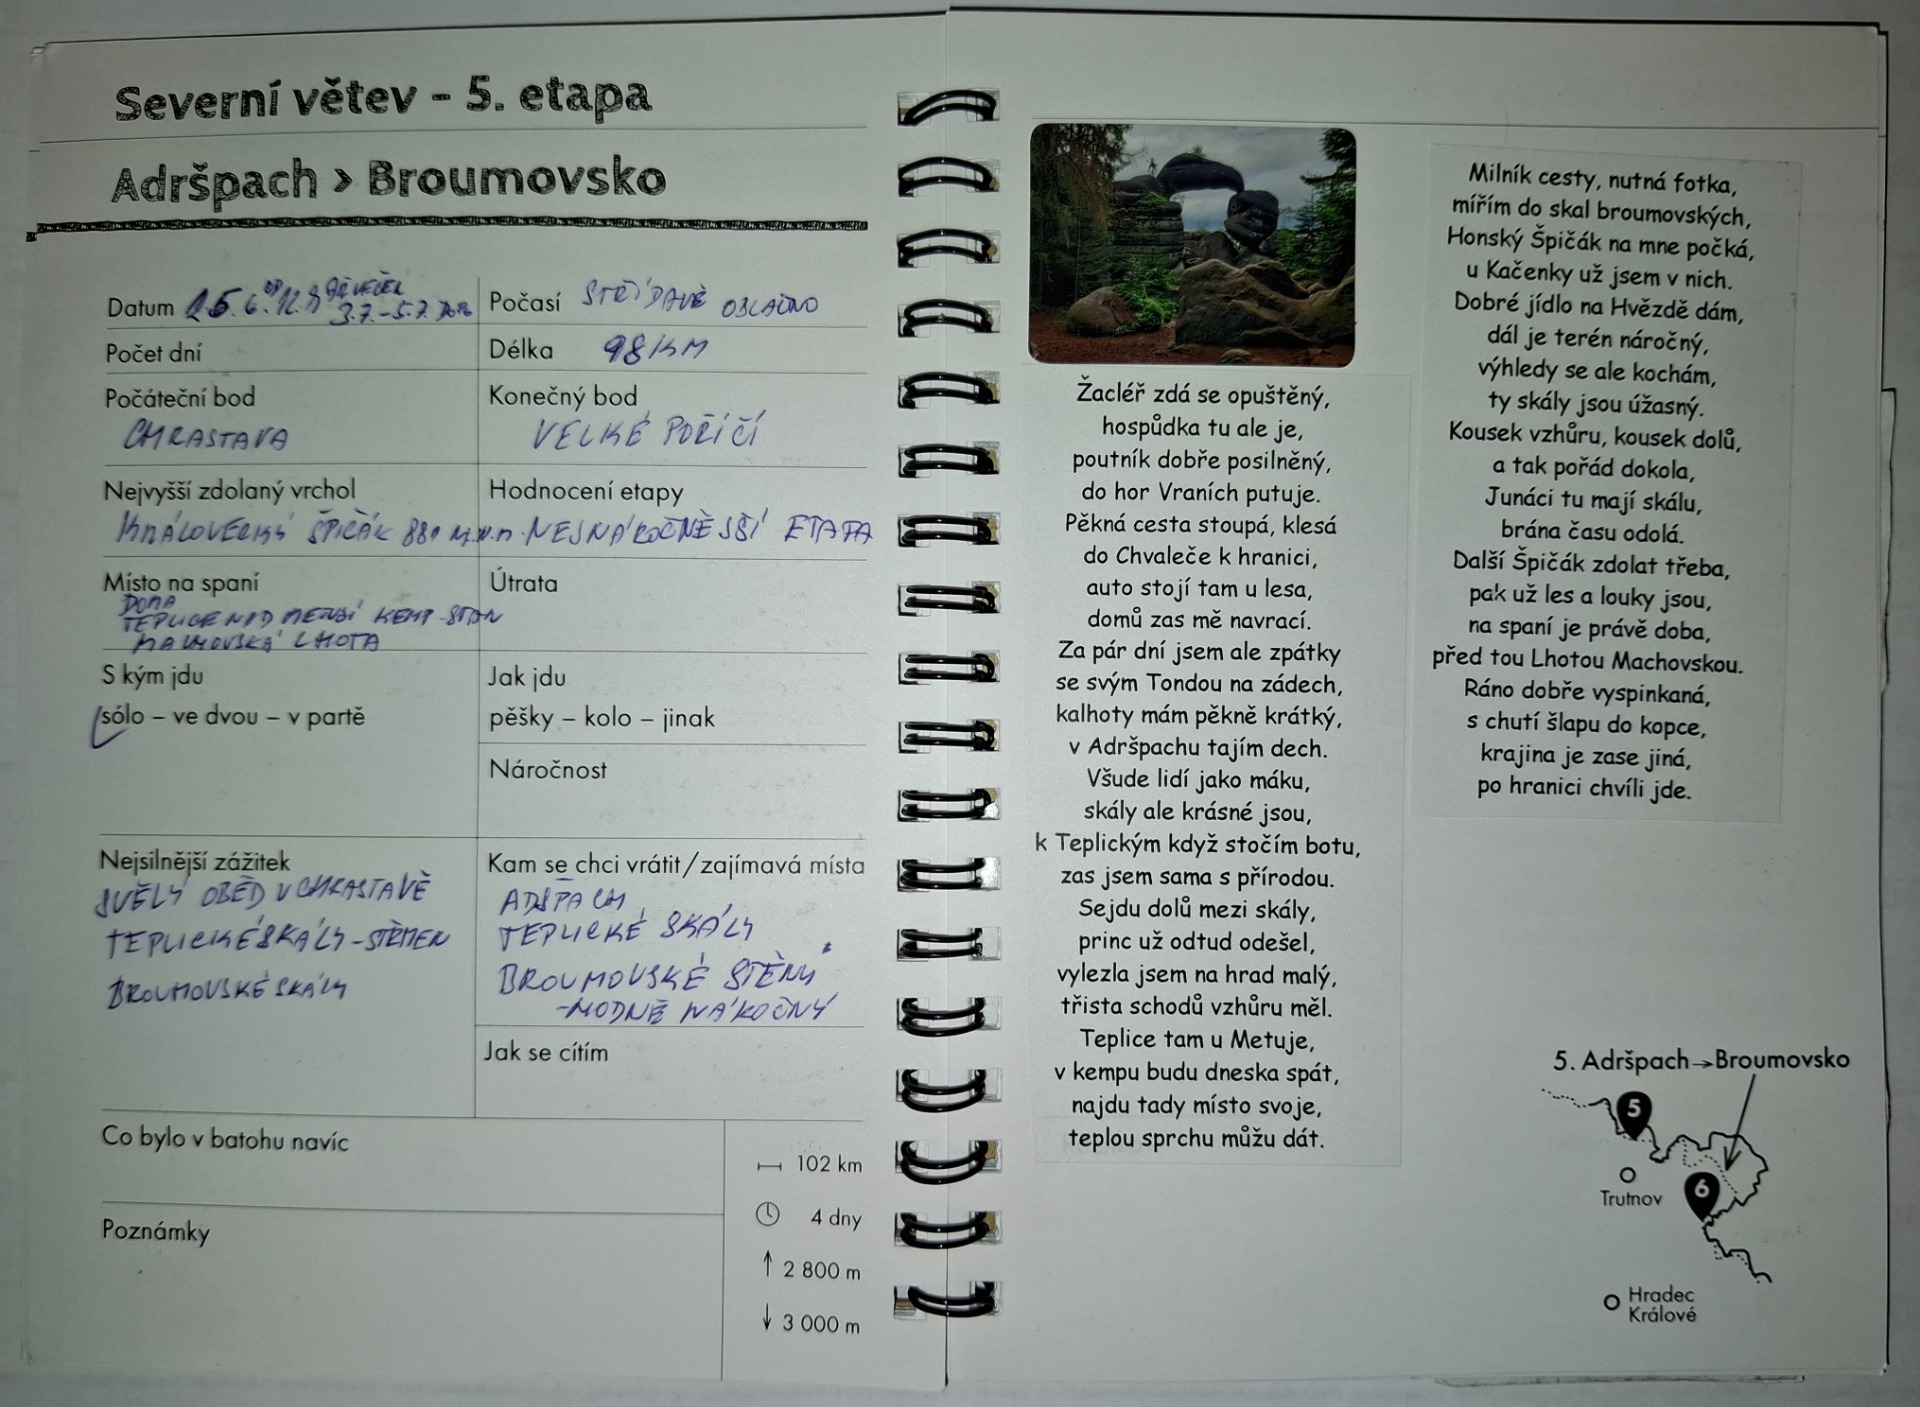 Severní větev - 5. etapa
Adršpach > Broumovsko
Datum 25.6. 3.7.-5.7.
Počasí STŘÍDAVĚ OBLAČNO
Počet dní
Délka 98 KM
Počáteční bod
CHRASTAVA
Konečný bod
VELKÉ POŘÍČÍ
Nejvyšší zdolaný vrchol
KRÁLOVECKÝ ŠPIČÁK 880 M.N.M.
Hodnocení etapy
NEJNÁROČNĚJŠÍ ETAPA
Místo na spaní
DOMA
TEPLICE NAD METUJÍ KEMP-STAN
MACHOVSKÁ LHOTA
Útrata
S kým jdu
sólo – ve dvou – v partě
Jak jdu
pěšky – kolo – jinak
Náročnost
Nejsilnější zážitek
SVĚLÝ OBĚD V CHRASTAVĚ
TEPLICKÉ SKÁLY-STŘMEN
BROUMOVSKÉ SKÁLY
Kam se chci vrátit/zajímavá místa
ADŠPACH
TEPLICKÉ SKÁLY
BROUMOVSKÉ STĚNY
-HODNĚ NÁROČNÝ
Jak se cítím
Co bylo v batohu navíc
Poznámky
102 km
4 dny
↑ 2 800 m
↓ 3 000 m
Žacléř zdá se opuštěný,
hospůdka tu ale je,
poutník dobře posilněný,
do hor Vraních putuje.
Pěkná cesta stoupá, klesá
do Chvaleče k hranici,
auto stojí tam u lesa,
domů zas mě navrací.
Za pár dní jsem ale zpátky
se svým Tondou na zádech,
kalhoty mám pěkně krátký,
v Adršpachu tajím dech.
Všude lidí jako máku,
skály ale krásné jsou,
k Teplickým když stočím botu,
zas jsem sama s přírodou.
Sejdu dolů mezi skály,
princ už odtud odešel,
vylezla jsem na hrad malý,
třista schodů vzhůru měl.
Teplice tam u Metuje,
v kempu budu dneska spát,
najdu tady místo svoje,
teplou sprchu můžu dát.
Milník cesty, nutná fotka,
mířím do skal broumovských,
Honský Špičák na mne počká,
u Kačenky už jsem v nich.
Dobré jídlo na Hvězdě dám,
dál je terén náročný,
výhledy se ale kochám,
ty skály jsou úžasný.
Kousek vzhůru, kousek dolů,
a tak pořád dokola,
Junáci tu mají skálu,
brána času odolá.
Další Špičák zdolat třeba,
pak už les a louky jsou,
na spaní je právě doba,
před tou Lhotou Machovskou.
Ráno dobře vyspinkaná,
s chutí šlapu do kopce,
krajina je zase jiná,
po hranici chvíli jde.
5. Adršpach→Broumovsko
5
Trutnov
6
Hradec
Králové